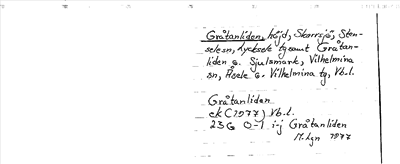 Gråtanliden, höjd, Skarvsjö, Sten-
selesn, Lycksele tg samt Gråtan-
liden o. Sjulsmark, Vilhelmina
sn, Åsele o. Vilhelmina tg, Vb.l.
Gråtanliden
ek (1977) Vb.l.
23G 0-1 i-j Gråtanliden
M.Lgn 1977